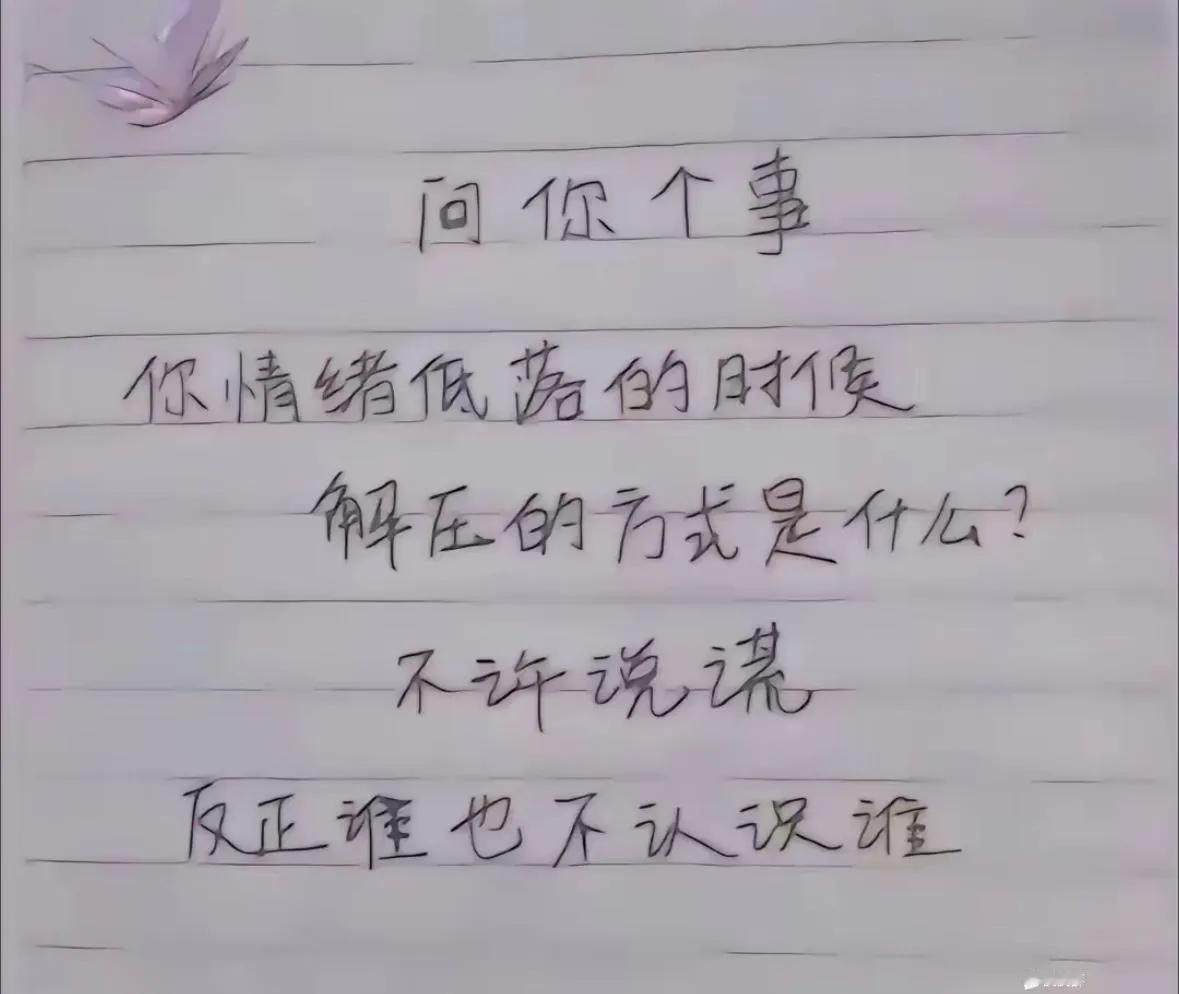 问你个事
你情绪低落的时候
解压的方式是什么?
不许说谎
反正谁也不认识谁